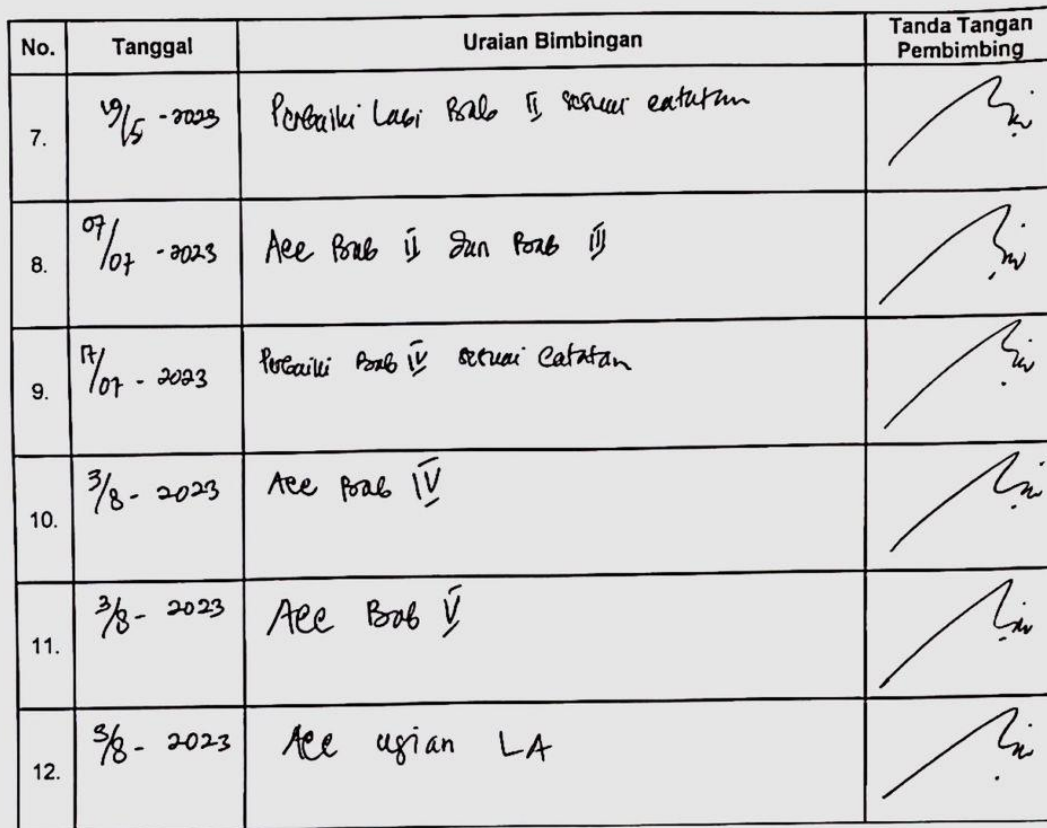 No. Tanggal Uraian Bimbingan Tanda Tangan
Pembimbing
7. 19/5 - 2023 Perbaiki Lagi Bab II sesuai catatan
8. 07/07 - 2023 Acc Bab II dan Bab III
9. 17/07 - 2023 Perbaiki Bab IV sesuai Catatan
10. 3/8 - 2023 Acc Bab IV
11. 3/8 - 2023 Acc Bab V
12. 3/8 - 2023 Acc ujian LA